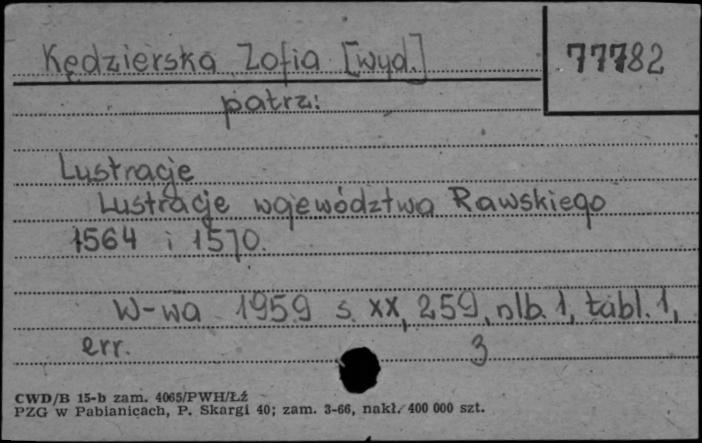 Kędzierska Zofia [wyd.] 77782
patrz:
Lustracje
Lustracje województwa Rawskiego
1564 i 1570.
W-wa 1959 s. XX, 259, nlb. 1, tabl. 1,
err. 3
CWD/B 15-b zam. 4065/PWH/Łź
PZG w Pabianicach, P. Skargi 40; zam. 3-66, nakł. 400 000 szt.